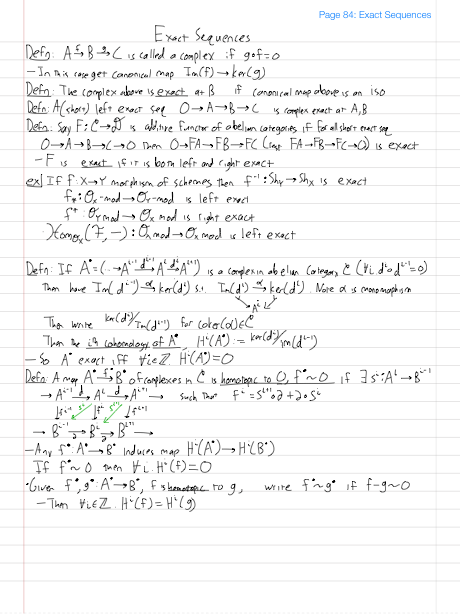 Page 84: Exact Sequences
Exact Sequences
Defn: A →f B →g C is called a complex if g∘f=0
- In this case get canonical map Im(f) → ker(g)
Defn: The complex above is exact at B if canonical map above is an iso
Defn: A (short) left exact seq 0→A→B→C is complex exact at A,B
Defn: Say F: C→D is additive functor of abelian categories if for all short exact seq
0→A→B→C→0 then 0→FA→FB→FC (resp FA→FB→FC→0) is exact
- F is exact if it is both left and right exact
ex] If f: X→Y morphism of schemes then f⁻¹: Sh_Y → Sh_X is exact
f_*: O_X-mod → O_Y-mod is left exact
f^*: O_Y mod → O_X mod is right exact
Hom_{O_X}(F, -): O_X mod → O_X mod is left exact
Defn: If A^• = (… → A^{i-1} →d^{i-1} A^i →d^i A^{i+1}) is a complex in abelian category C (∀i, d^i∘d^{i-1}=0)
Then have Im(d^{i-1}) →α ker(d^i) s.t. Im(d^{i-1}) →α ker(d^i). Note α is monomorphism
↘ A^i ↙
Then write ker(d^i)/Im(d^{i-1}) for coker(α) ∈ C
Then the ith cohomology of A^•, H^i(A^•) := ker(d^i)/im(d^{i-1})
- So A^• exact iff ∀i∈Z, H^i(A^•)=0
Defn: A map A^• →f^• B^• of complexes in C is homotopic to 0, f^•~0 if ∃ s^i: A^i → B^{i-1}
→ A^{i-1} →d A^i →d A^{i+1} → such that f^i = s^{i+1}∘d + ∂∘s^i
↓f^{i-1} s^i ↓f^i s^{i+1} ↓f^{i+1}
→ B^{i-1} →∂ B^i →∂ B^{i+1} →
- Any f^•: A^• → B^• induces map H^i(A^•) → H^i(B^•)
If f^•~0 then ∀i. H^i(f)=0
• Given f^•, g^•: A^• → B^•, f is homotopic to g, write f^•~g^• if f-g~0
- Then ∀i∈Z. H^i(f)=H^i(g)